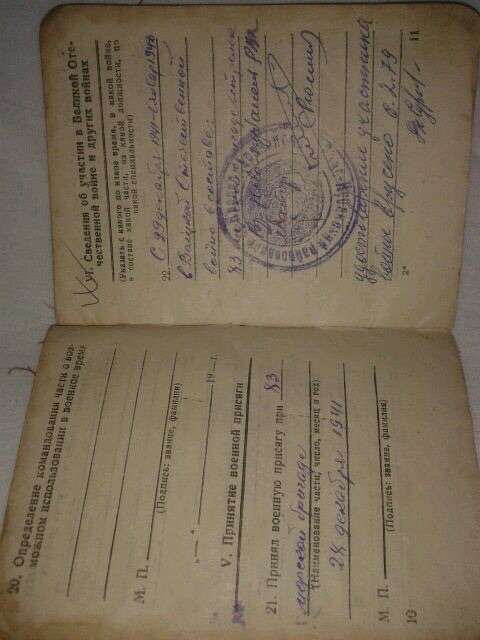 20. Определение командования части о воз-
можном использовании в военное время
М. П.
(Подпись: звание, фамилия)
19 — г.
V. Принятие военной присяги
21. Принял военную присягу при 83
морской бригаде
(Наименование части, число, месяц и год)
28 декабря 1941
М. П.
(Подпись: звание, фамилия)
10
VI. Сведения об участии в Великой Оте-
чественной войне и других войнах
(Указать с какого по какое время, в какой войне,
в составе какой части, на какой должности, по
какой специальности)
22. С 29 декабря 1941
в Великой Отечественной
войне в составе:
83
удостоверение участника
войны вручено 6.2.79
2*
11